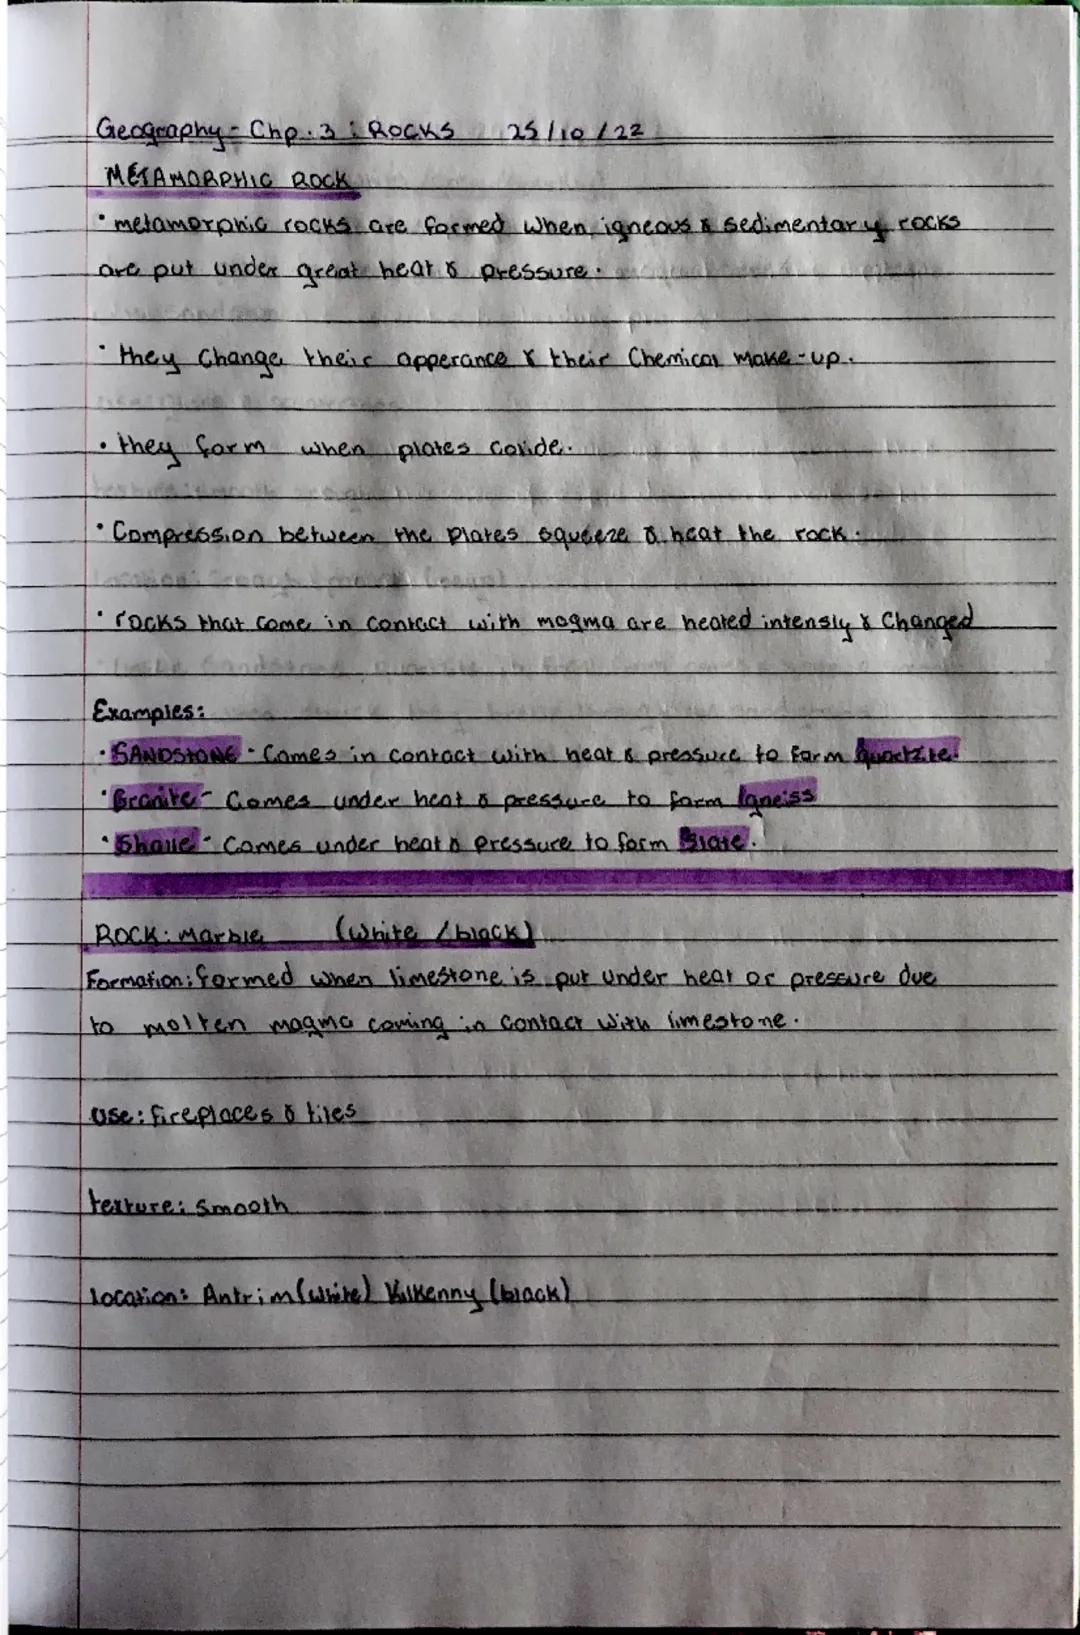 Geography - Chp. 3 : ROCKS 25/10/22
METAMORPHIC ROCK
• metamorphic rocks are formed when igneous & sedimentary rocks
are put under great heat & pressure.
• they change their apperance & their chemical make-up.
• they form when plates colide.
• Compression between the plates squeeze & heat the rock.
• rocks that come in contact with magma are heated intensly & changed
Examples:
• SANDSTONE - Comes in contact with heat & pressure to form quartzite.
• Granite - Comes under heat & pressure to form Igneiss
• Shale - Comes under heat & pressure to form Slate.
ROCK: marble (white /black)
Formation: formed when limestone is put under heat or pressure due
to molten magma coming in contact with limestone.
use: fireplaces & tiles
texture: smooth
location: Antrim (white) Kilkenny (black)